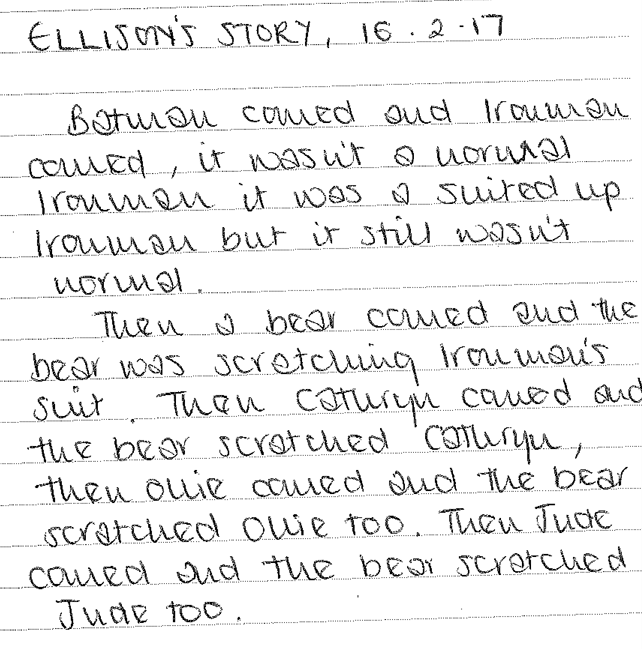 ELLISON'S STORY, 16.2.17
Batman comed and Ironman
comed, it wasn't a normal
Ironman it was a suited up
Ironman but it still wasn't
normal.
Then a bear comed and the
bear was scratching Ironman's
suit. Then Cathryn comed and
the bear scratched Cathryn,
then Ollie comed and the bear
scratched Ollie too. Then Jude
comed and the bear scratched
Jude too.